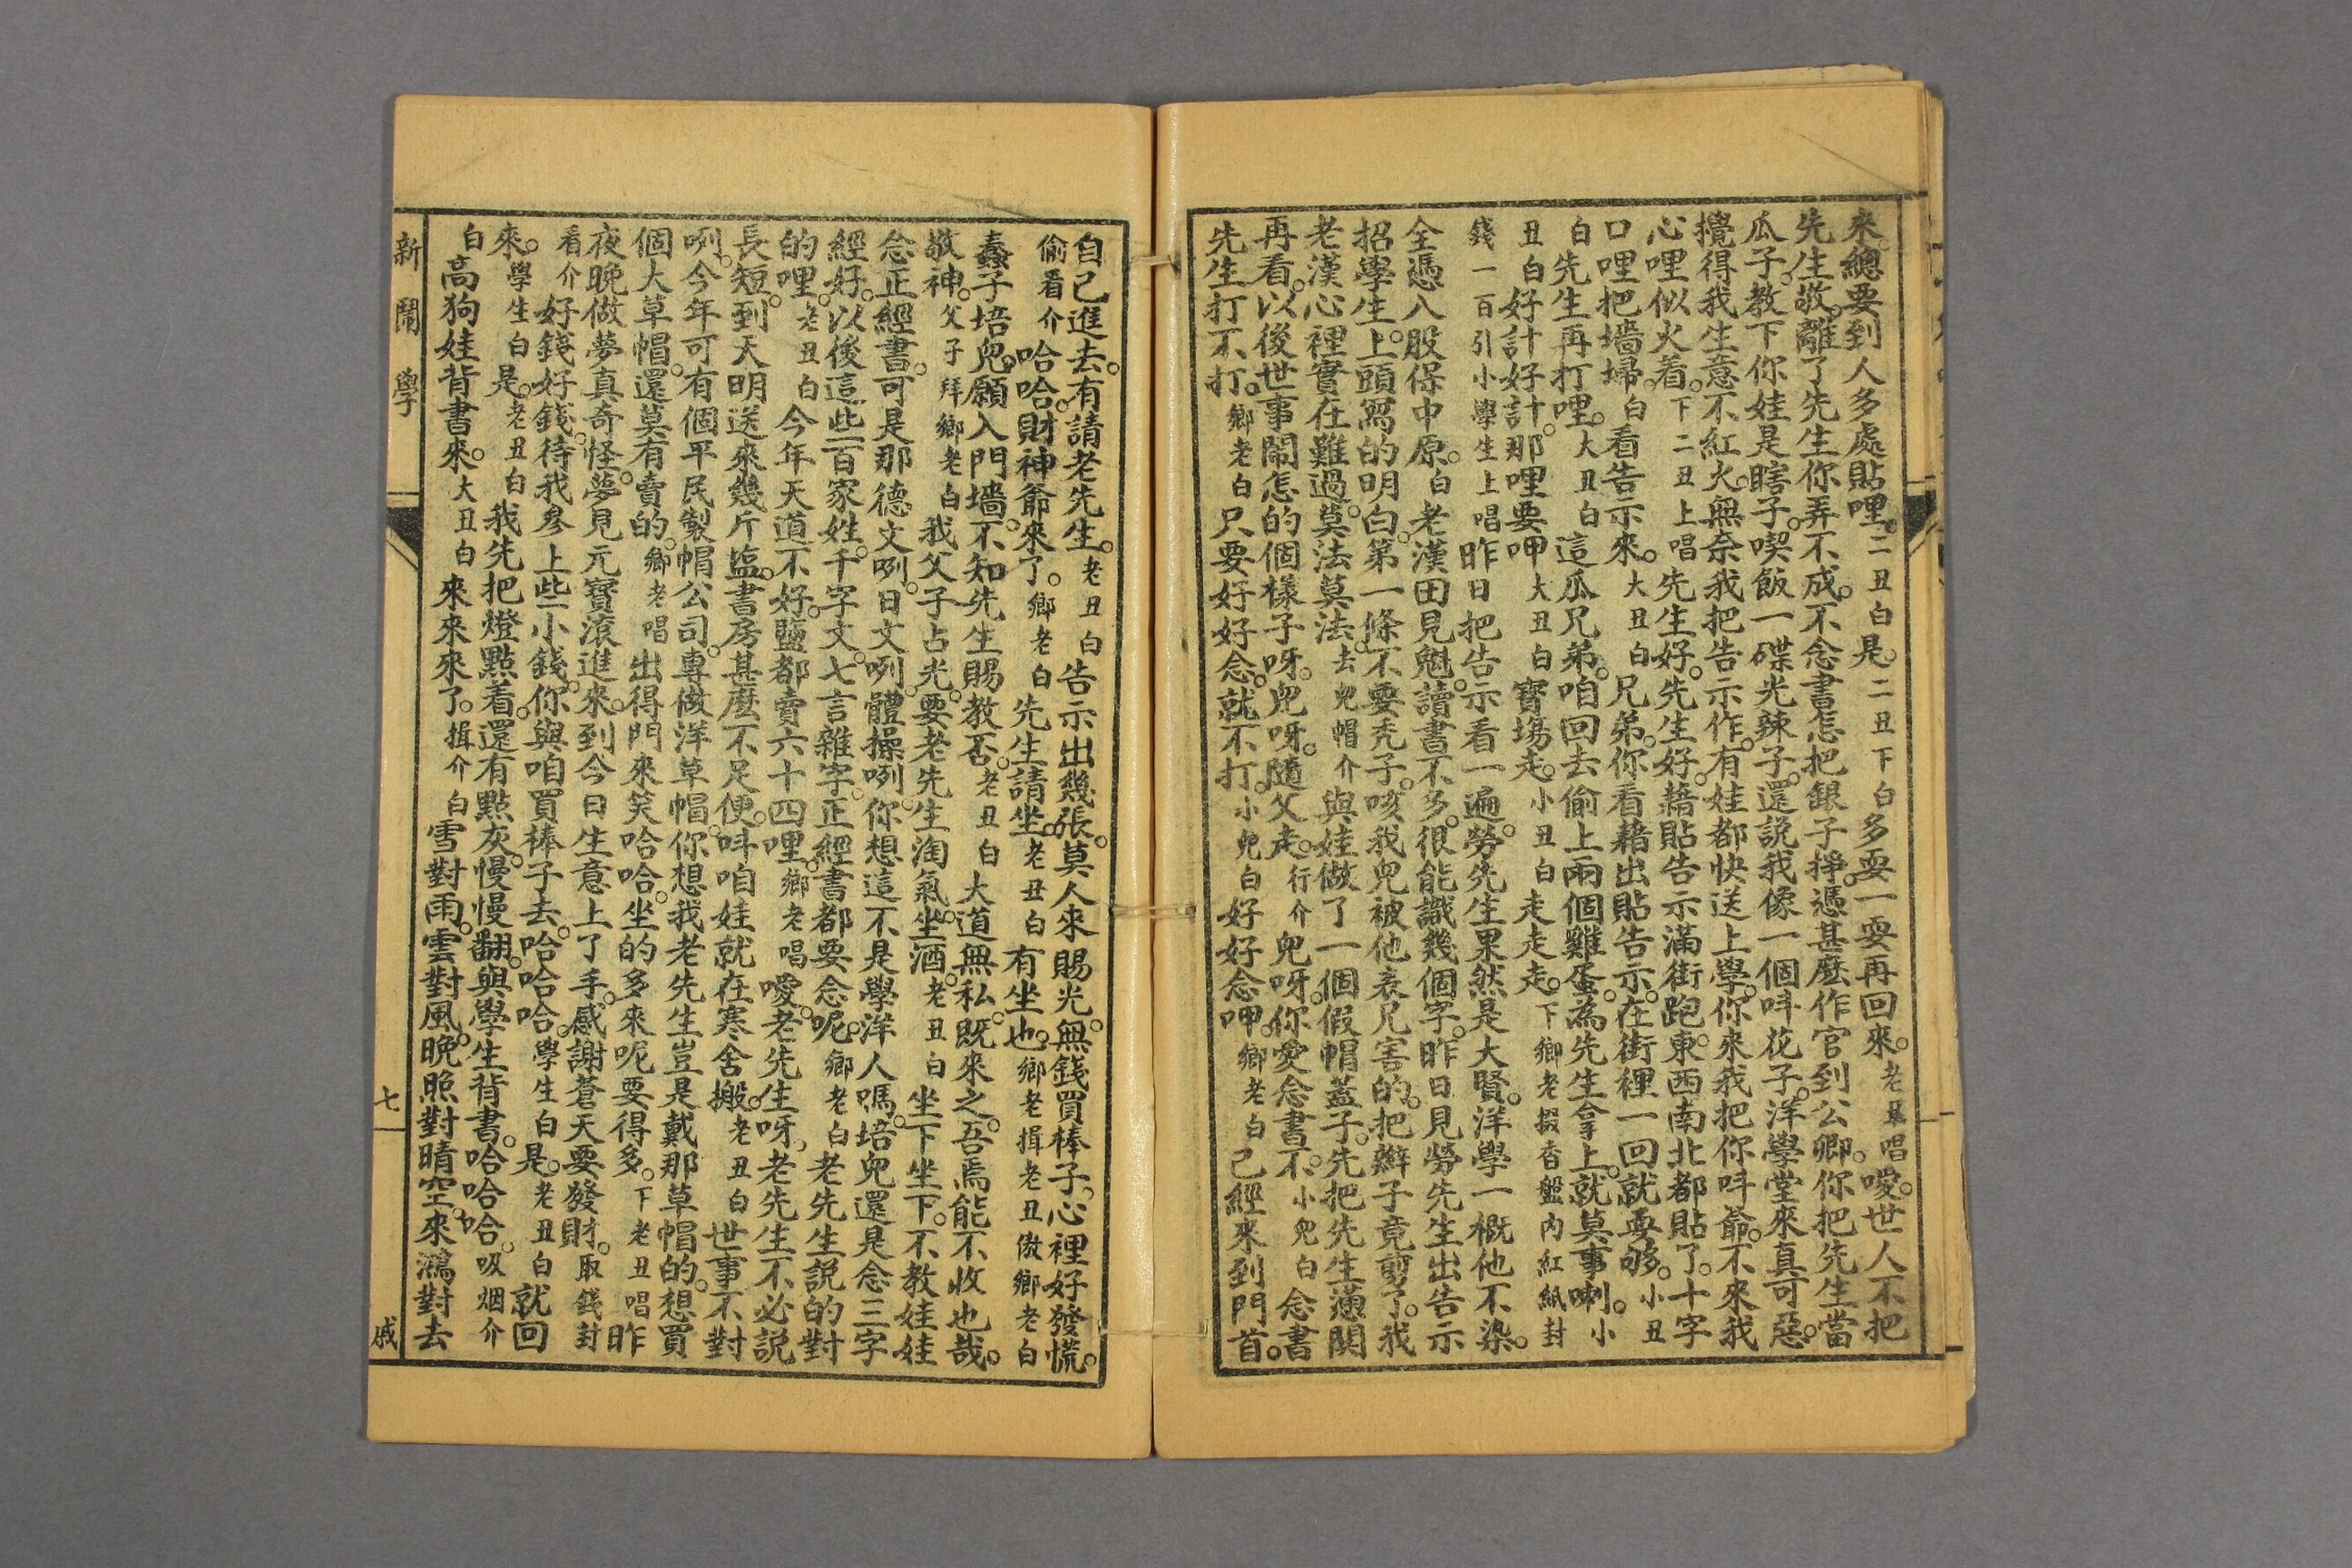 來。總要到人多處貼哩。二丑白是。二丑下白多耍一耍再回來。老丑唱噯。世人不把
先生敬。離了先生你弄不成。不念書怎把銀子掙。憑甚麽作官到公卿。你把先生當
瓜子。教下你娃是瞎子。喫飯一碟光辣子。還說我像一個呌花子。洋學堂來真可惡。
攪得我生意不紅火。無奈我把告示作。有娃都快送上學。你來我把你呌爺。不來我
心哩似火着。下二丑上唱先生好。先生好。藉貼告示滿街跑。東西南北都貼了。十字
口哩把墻埽。白看告示來。大丑白兄弟。你看藉出貼告示。在街裡一回就耍够。小丑
白先生再打哩。大丑白這瓜兄弟。咱回去偷上兩個雞蛋。為先生拿上。就莫事喇。小
丑白好計好計。那哩要呷大丑白寳塲走。小丑白走走走。下鄉老掇香盤內紅紙封
錢一百引小學生上唱昨日把告示看一遍。勞先生果然是大賢。洋學一概他不染。
全憑八股保中原。白老漢田見魁。讀書不多。很能識幾個字。昨日見勞先生出告示
招學生。上頭寫的明白。第一條不要禿子。咳我兒被他表兄害的。把辮子竟剪了。我
老漢心裡實在難過。莫法莫法。去兒帽介與娃做了一個假帽蓋子。先把先生懣関
再看。以後世事鬧怎的個樣子呀。兒呀。隨父走。行介兒呀。你愛念書不。小兒白念書
先生打不打。鄉老白只要好好念。就不打。小兒白好好念呷。鄉老白已經來到門首。
自己進去。有請老先生。老丑白告示出幾張。莫人來賜光。無錢買棒子。心裡好發慌。
偷看介哈哈。財神爺來了。鄉老白先生請坐。老丑白有坐也。鄉老揖老丑傲鄉老白
蠢子培兒。願入門墻。不知先生賜教否。老丑白大道無私。既來之。吾焉能不收也哉。
敬神。父子拜鄉老白我父子占光。要老先生淘氣。坐酒。老丑白坐下坐下。不教娃娃
念正經書。可是那德文咧。日文咧體操咧。你想這不是學洋人嗎。培兒還是念三字
經好。以後這些百家姓。千字文。七言雜字。正經書都要念呢。鄉老白老先生説的對
的哩。老丑白今年天道不好。鹽都賣六十四哩。鄉老唱噯。老先生呀。老先生不必説
長短。到天明送來幾斤盐。書房甚麽不足便。呌咱娃就在寒舍搬。老丑白世事不對
咧。今年可有個平民製帽公司。專做洋草帽。你想我老先生豈是戴那草帽的。想買
個大草帽。還莫有賣的。鄉老唱出得門來笑哈哈。坐的多來呢要得多。下老丑唱昨
夜晚做夢真奇怪。夢見元寳滾進來。到今日生意上了手。感謝蒼天要發財。取錢封
看介好錢好錢。待我參上些小錢。你與咱買棒子去。哈哈哈。學生白是。老丑白就回
來。學生白是。老丑白我先把燈點着。還有點灰。慢慢翻。與學生背書。哈哈哈。吸烟介
白高狗娃背書來。大丑白來來來了。揖介白雪對雨。雲對風。晚照對晴空。來鴻對去
新鬧學
七
戚